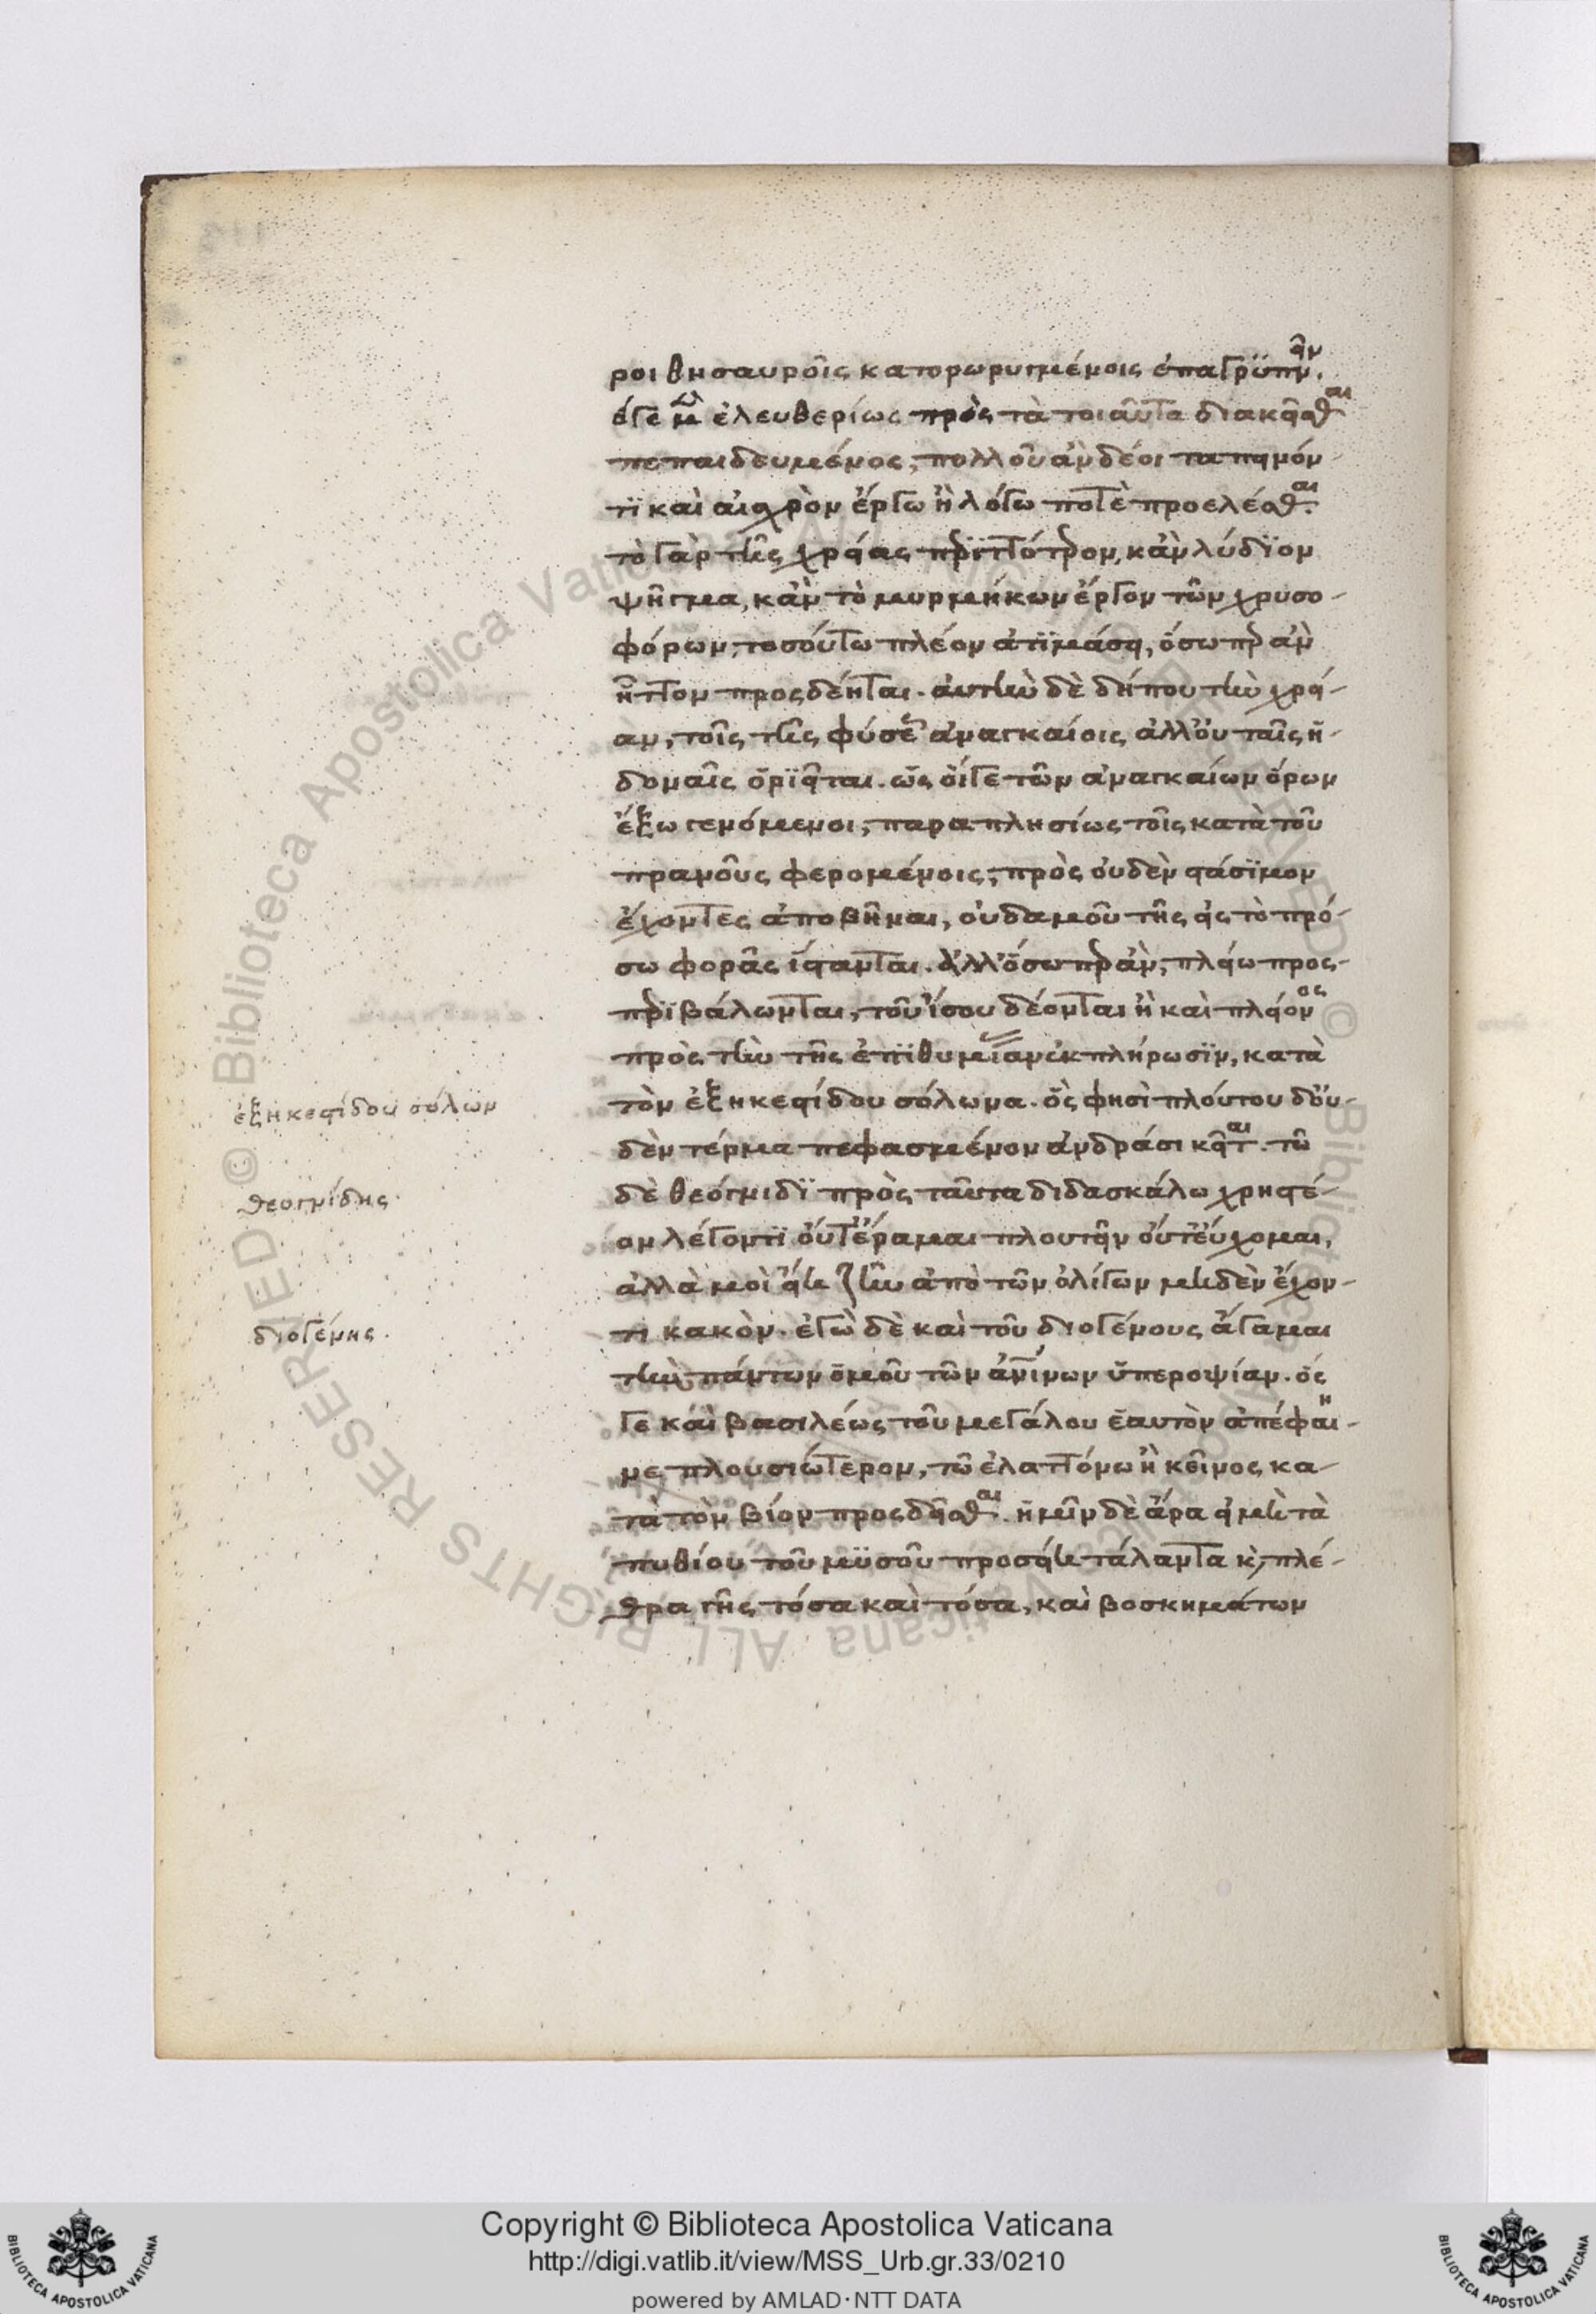 ροι θησαυροῖς κατορωρυγμένοις ἐπαγρϋπνεῖν.
ὅγε μὴν ἐλευθερίως πρὸς τὰ τοιαῦτα διακεῖσθαι
πεπαιδευμένος, πολλοῦ ἂν δέοι ταπεινόν
τϊ καὶ αἰσχρὸν ἔργω ἢ λόγω ποτὲ προελέσθαι.
τὸ γὰρ τῆς χρείας περϊττότερον, κἂν λύδϊον
ψῆγμα, κἂν τὸ μυρμήκων ἔργον τῶν χρυσο-
φόρων, τοσούτω πλέον ἀτϊμάσει, ὅσωπερ ἂν
ἧττον προςδέηται. αὐτὴν δὲ δήπου τὴν χρεί-
αν, τοῖς τῆς φύσεως ἀναγκαίοις, ἀλλ' οὐ ταῖς ἡ-
δοναῖς ὁρϊεῖται. ὡς οἵγε τῶν ἀναγκαίων ὅρων
ἔξω γενόμενοι, παραπλησίως τοῖς κατὰ τοῦ
πρανοῦς φερομένοις, πρὸς οὐδὲν στάσϊμον
ἔχοντες ἀποβῆναι, οὐδαμοῦ τῆς εἰς τὸ πρό-
σω φορᾶς ἵστανται. ἀλλ' ὅσωπερ ἂν, πλείω προς-
περϊβάλωνται, τοῦ ἴσου δέονται ἢ καὶ πλείονος
πρὸς τὴν τῆς ἐπϊθυμίαν ἐκπλήρωσϊν, κατὰ
τὸν ἐξηκεστίδου σόλωνα. ὅς φησὶ πλούτου δ' οὐ-
δὲν τέρμα πεφασμένον ἀνδράσι κεῖται. τῶ
δὲ θεόγνιδϊ πρὸς ταῦτα διδασκάλω χρηστέ-
ον λέγοντϊ οὔτ' ἔραμαι πλουτεῖν οὔτ' εὔχομαι,
ἀλλά μοι εἴη ζῆν ἀπὸ τῶν ὀλίγων μηδὲν ἔχον-
τι κακὸν. ἐγὼ δὲ καὶ τοῦ διογένους ἄγαμαι
τὴν πάντων ὁμοῦ τῶν ἀνίνων ὑπεροψίαν. ὅς
γε καὶ βασιλέως τοῦ μεγάλου ἑαυτὸν ἀπέφαιη-
νε πλουσιώτερον, τῶ ἐλαττόνων ἢ κεῖνος κα-
τὰ τὸν βίον προςδεῖσθαι. ἡμῖν δὲ ἄρα εἰ μὴ τὰ
πυθίου τοῦ μϋσοῦ προσείη τάλαντα κ(αὶ), πλέ-
θρα γῆς τόσα καὶ τόσα, καὶ βοσκημάτων
ἐξηκεστίδου σόλων
θεογνίδης.
διογένης.
Copyright © Biblioteca Apostolica Vaticana
http://digi.vatlib.it/view/MSS_Urb.gr.33/0210
powered by AMLAD·NTT DATA